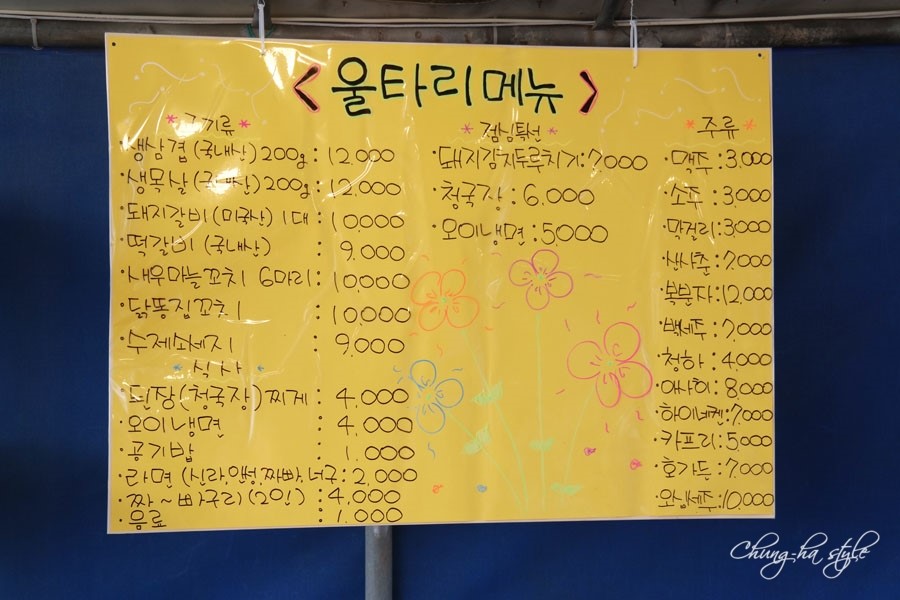 <울타리메뉴>
*고기류*
·생삼겹(국내산)200g: 12,000
·생목살(국내산)200g: 12,000
·돼지갈비(미국산)1대 : 10,000
·떡갈비(국내산) : 9,000
·새우마늘꼬치 6마리: 10,000
·닭똥집꼬치 : 10,000
·수제소세지 : 9,000
*식사*
·된장(청국장)찌게 : 4,000
·오이냉면 : 4,000
·공기밥 : 1,000
·라면(신라,앵성,짜빠,너구: 2,000
·짜~빠구리)(2인) : 4,000
·음료 : 1,000
*점심특선*
·돼지김치두루치기:7,000
·청국장: 6,000
·오이냉면:5,000
*주류*
·맥주:3,000
·소주:3,000
·막걸리:3,000
·산사춘:7,000
·복분자:12,000
·백세주:7,000
·청하:4,000
·아사히:8,000
·하이네켄:7,000
·카프리:5,000
·호가든:7,000
·오십세주:10,000
Chung-ha style